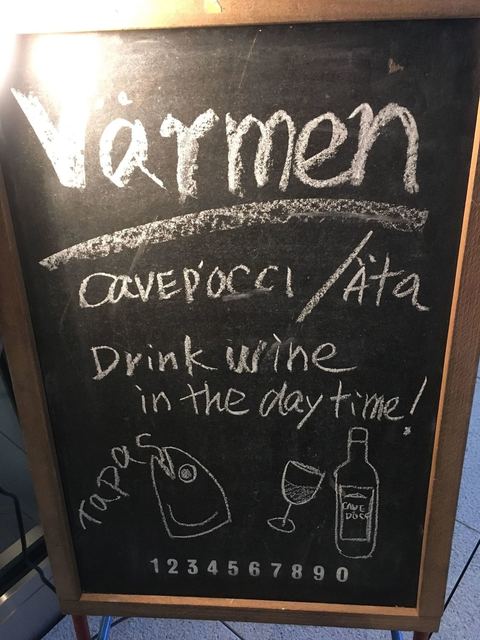 Värmen
CAVED'OCCI / Äta
Drink wine
in the day time!
Tapas
CAVE
D'OCCI
1 2 3 4 5 6 7 8 9 0